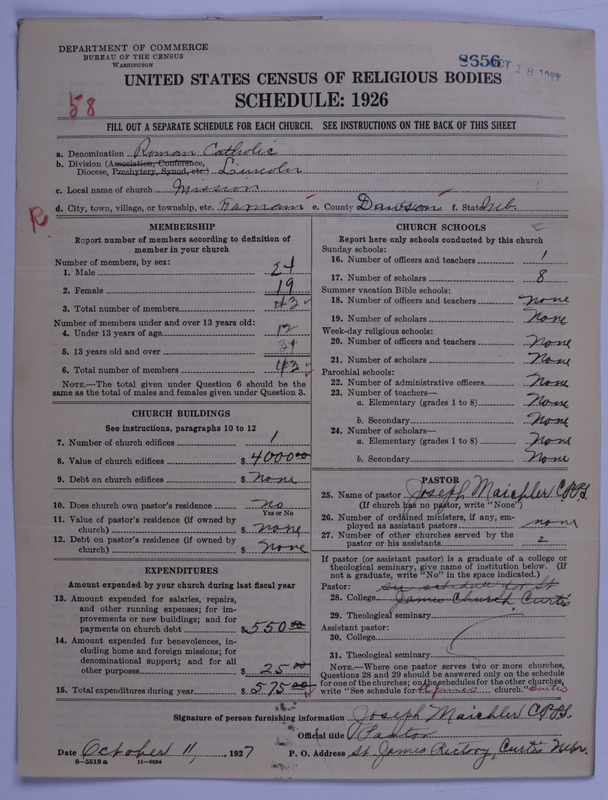 DEPARTMENT OF COMMERCE
BUREAU OF THE CENSUS
WASHINGTON
8656
OCT 18 1927
UNITED STATES CENSUS OF RELIGIOUS BODIES
58
SCHEDULE: 1926
FILL OUT A SEPARATE SCHEDULE FOR EACH CHURCH. SEE INSTRUCTIONS ON THE BACK OF THIS SHEET
a. Denomination Roman Catholic
b. Division (Association, Conference, Diocese, Presbytery, Synod, etc.) Lincoln
c. Local name of church Mission
R d. City, town, village, or township, etc. Farnam e. County Dawson f. State Neb.
MEMBERSHIP
Report number of members according to definition of member in your church
Number of members, by sex:
1. Male 24
2. Female 19
3. Total number of members 43
Number of members under and over 13 years old:
4. Under 13 years of age 12
5. 13 years old and over 31
6. Total number of members 43
NOTE.—The total given under Question 6 should be the same as the total of males and females given under Question 3.
CHURCH BUILDINGS
See instructions, paragraphs 10 to 12
7. Number of church edifices 1
8. Value of church edifices $ 4000.00
9. Debt on church edifices $ None
10. Does church own pastor's residence No
Yes or No
11. Value of pastor's residence (if owned by church) $ None
12. Debt on pastor's residence (if owned by church) $ None
EXPENDITURES
Amount expended by your church during last fiscal year
13. Amount expended for salaries, repairs, and other running expenses; for improvements or new buildings; and for payments on church debt $ 550.00
14. Amount expended for benevolences, including home and foreign missions; for denominational support; and for all other purposes $ 25.00
15. Total expenditures during year $ 575.00
CHURCH SCHOOLS
Report here only schools conducted by this church
Sunday schools:
16. Number of officers and teachers 1
17. Number of scholars 8
Summer vacation Bible schools:
18. Number of officers and teachers None
19. Number of scholars None
Week-day religious schools:
20. Number of officers and teachers None
21. Number of scholars None
Parochial schools:
22. Number of administrative officers None
23. Number of teachers—
a. Elementary (grades 1 to 8) None
b. Secondary None
24. Number of scholars—
a. Elementary (grades 1 to 8) None
b. Secondary None
PASTOR
25. Name of pastor Joseph Maichler C.PP.S.
(If church has no pastor, write "None")
26. Number of ordained ministers, if any, employed as assistant pastors none
27. Number of other churches served by the pastor or his assistants 2
If pastor (or assistant pastor) is a graduate of a college or theological seminary, give name of institution below. (If not a graduate, write "No" in the space indicated.)
Pastor: see schedule for St
28. College James Church Curtis
29. Theological seminary
Assistant pastor:
30. College
31. Theological seminary
NOTE.—Where one pastor serves two or more churches, Questions 28 and 29 should be answered only on the schedule for one of the churches; on the schedules for the other churches, write "See schedule for St. James church." Curtis
Signature of person furnishing information Joseph Maichler C.PP.S.
Official title Pastor
Date October 11, 1927 P. O. Address St James Rectory, Curtis Nebr.
8—5518a 11—9054